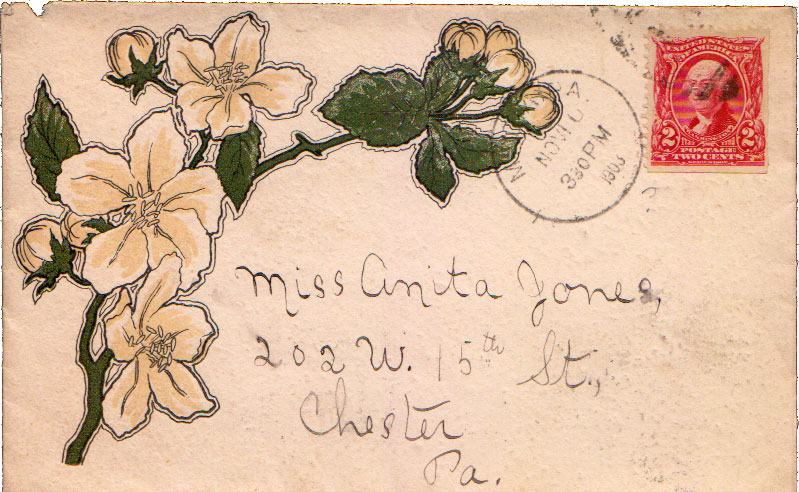 UNITED STATES
OF AMERICA
2 2
POSTAGE
TWO CENTS
330 PM
1903
Miss Anita Jones,
202 W. 15th St.,
Chester
Pa.